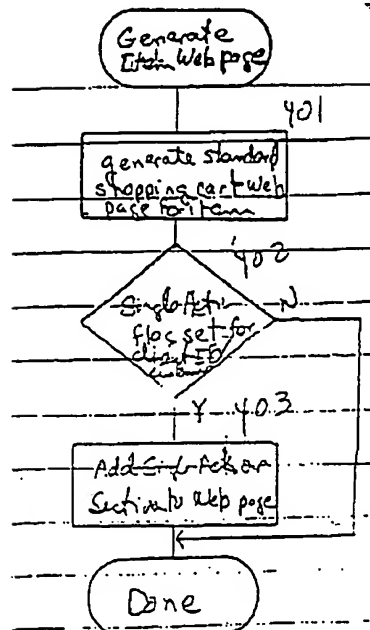 Generate
Item Web page
401
generate standard
shopping cart Web
page for item
402
Single-Action
N
flag set for
client ID
Y
403
Add Single-Action
Section to Web page
Done